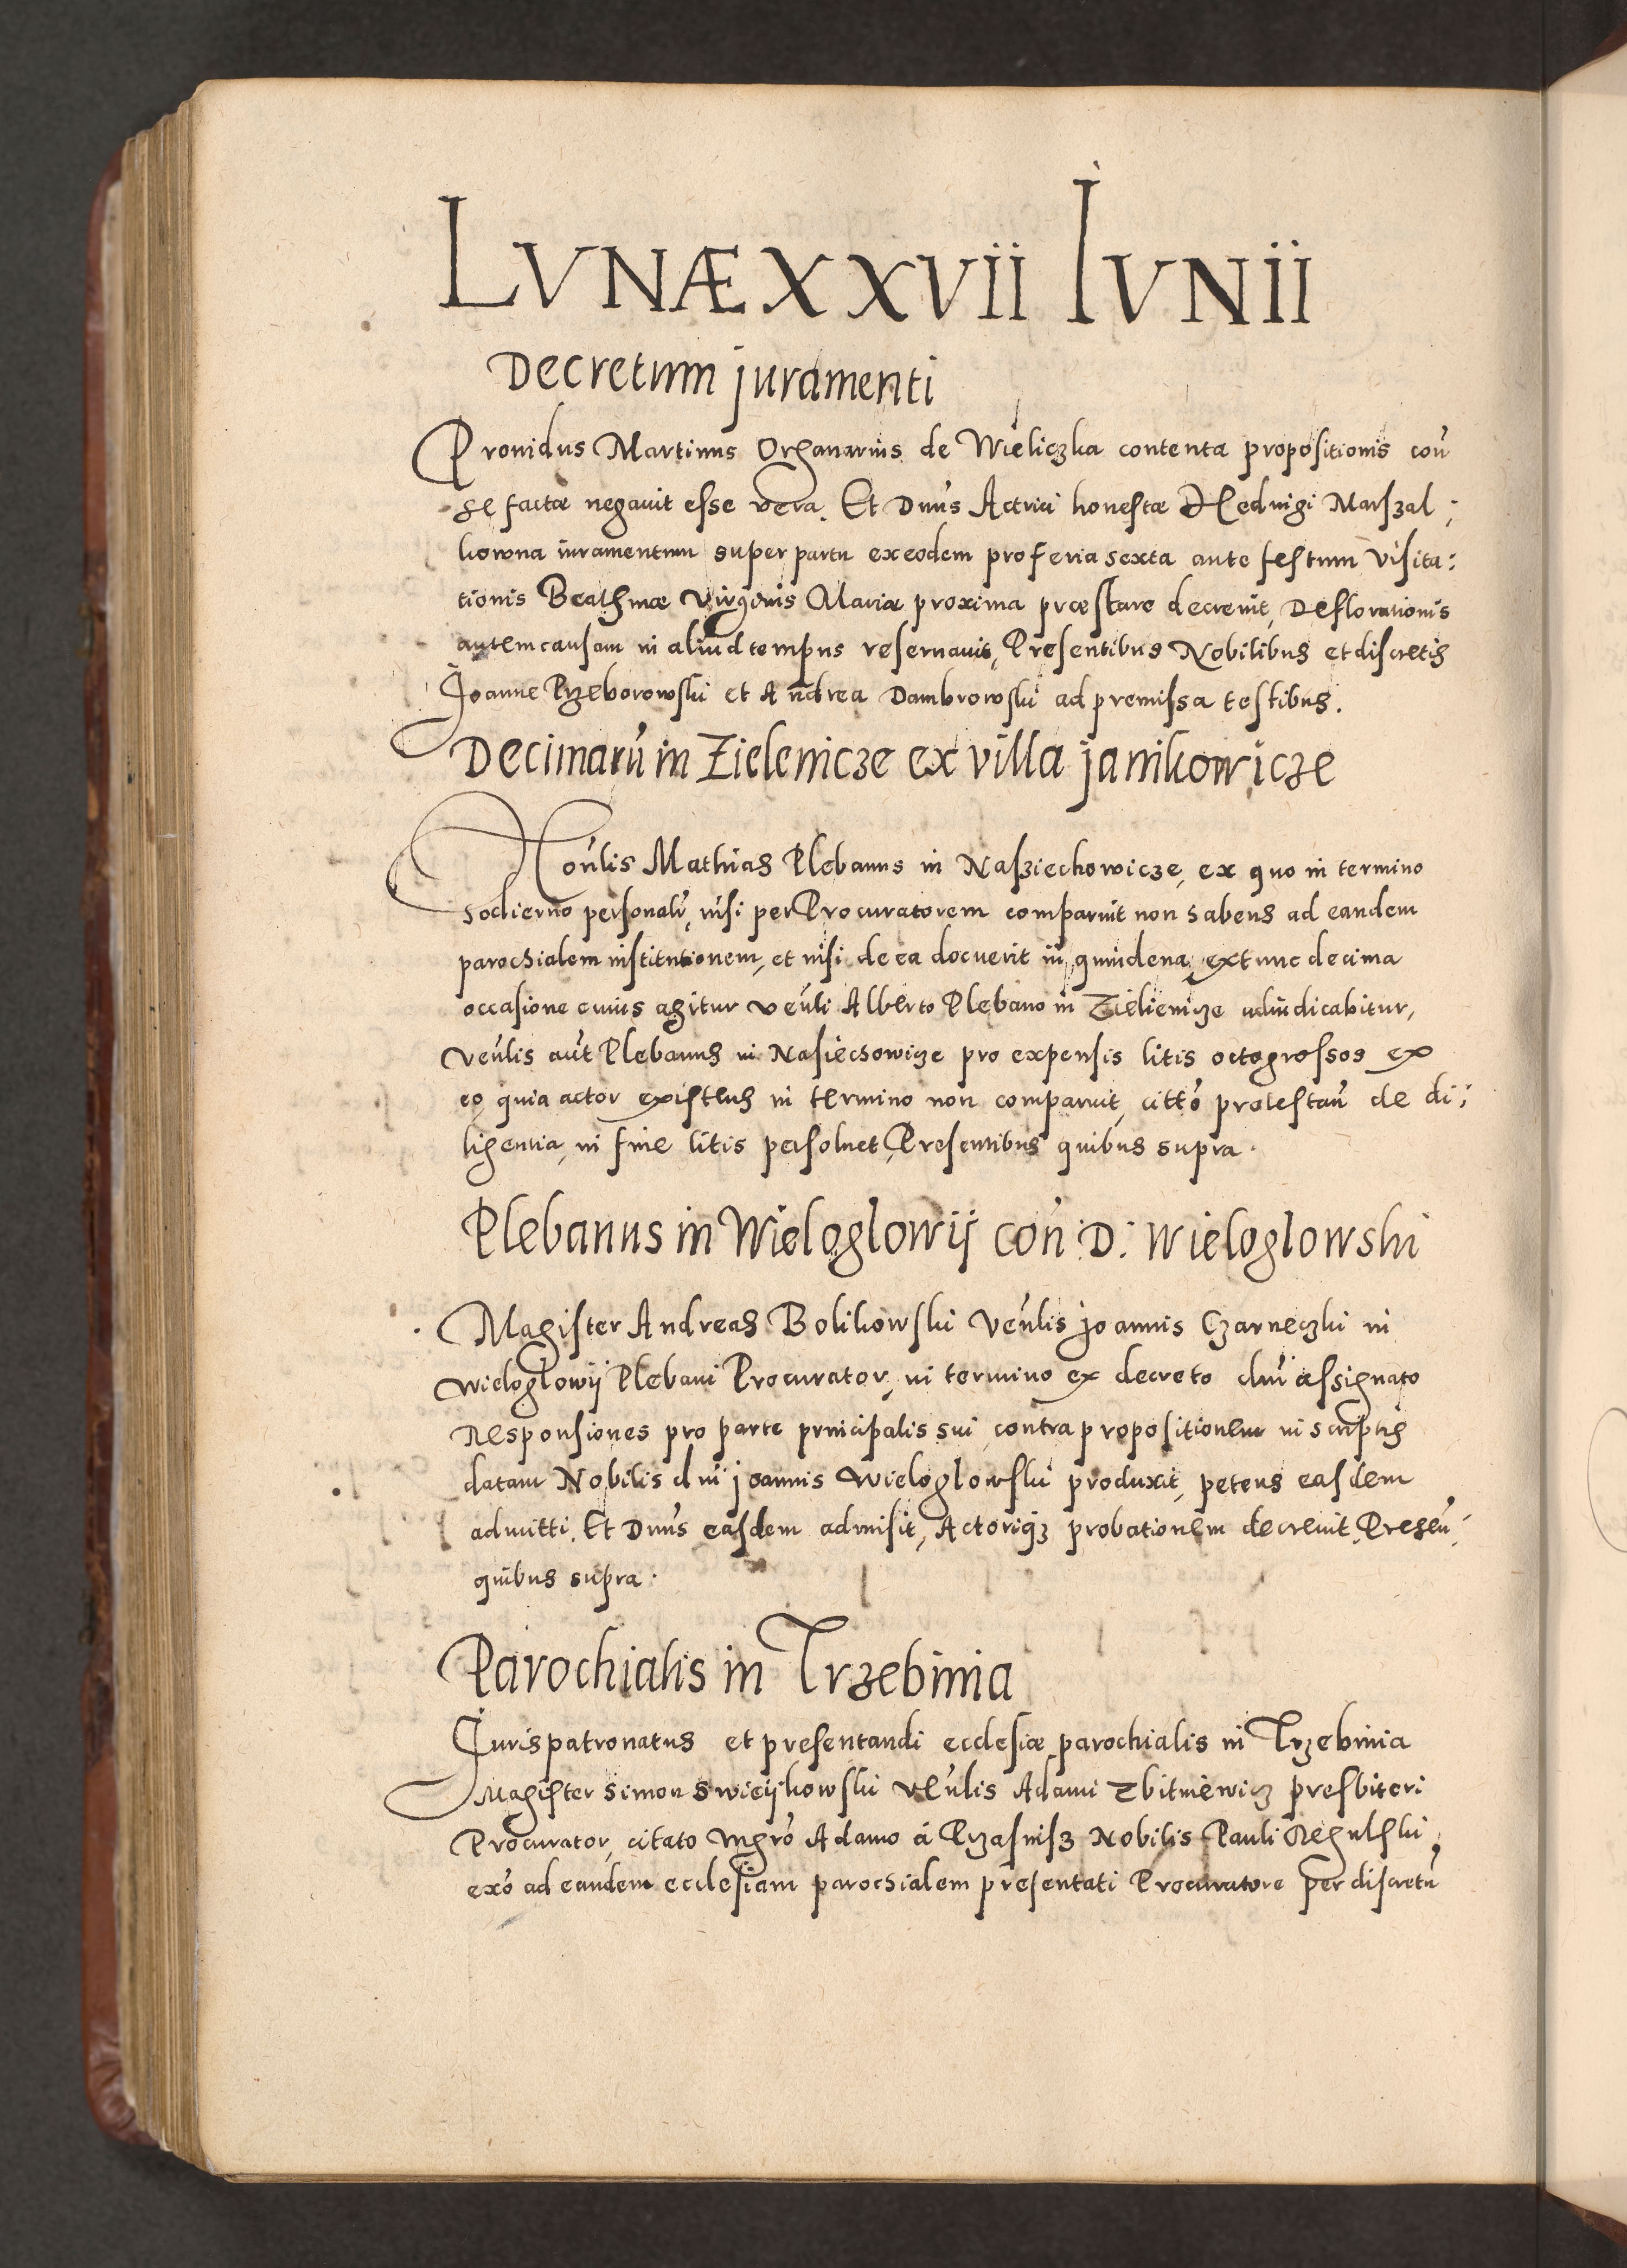 LVNÆ XXVII IVNII
Decretum juramenti
Prouidus Martinus Organarius de Wieliczka contenta propositionis coñ
se factæ negauit esse vera. Et Dnũs Actrici honestæ Hedwigi Marszal:
kowna iuramentum super partu ex eodem pro feria sexta ante festum Visita:
tionis Beatismæ Virginis Mariæ proxima præstare decreuit, Deflorationis
autem causam in aliud tempus reseruauit, Presentibus Nobilibus et discretis
Joanne Przeborowski et Andrea Dambrowski ad premissa testibus.
Decimarũ in Zielenicze ex villa janikowicze
Hoñlis Mathias Plebanus in Nasziechowicze, ex quo in termino
hodierno personalr̃, nisi per Procuratorem comparuit non habens ad eandem
parochialem institutionem, et nisi de ea docuerit in quindena, extunc decima
occasione cuius agitur veñli Alberto Plebano in Zielienicze adiudicabitur,
Veñlis aũt Plebanus in Nasiechowicze pro expensis litis octo grossos ex
eo, quia actor existens in termino non comparuit, citto protestañ de di:
ligentia, in fine litis persoluet, Presentibus quibus supra.
Plebanus in Wieloglowij coñ D: Wieloglowski
Magister Andreas Bolikowski Veñlis joannis Czarneczki in
Wieloglowij Plebani Procurator, in termino ex decreto dñi assignato
Responsiones pro parte principalis sui contra propositionem in scriptis
datam Nobilis dñi joannis Wieloglowski produxit, petens easdem
admitti. Et Dnũs easdem admisit, Actoriq₃ probationem decreuit, Preseñ:
quibus supra.
Parochialis in Trzebinia
Juris patronatus et presentandi ecclesiæ parochialis in Trzebinia
Magister Simon Swieijkowski Veñlis Adami Zbitniewicz presbiteri
Procurator, citato mgr̃o Adamo á Przasnisz Nobilis Pauli Regulski,
exõ ad eandem ecclesiam parochialem presentati Procuratore per discretũ